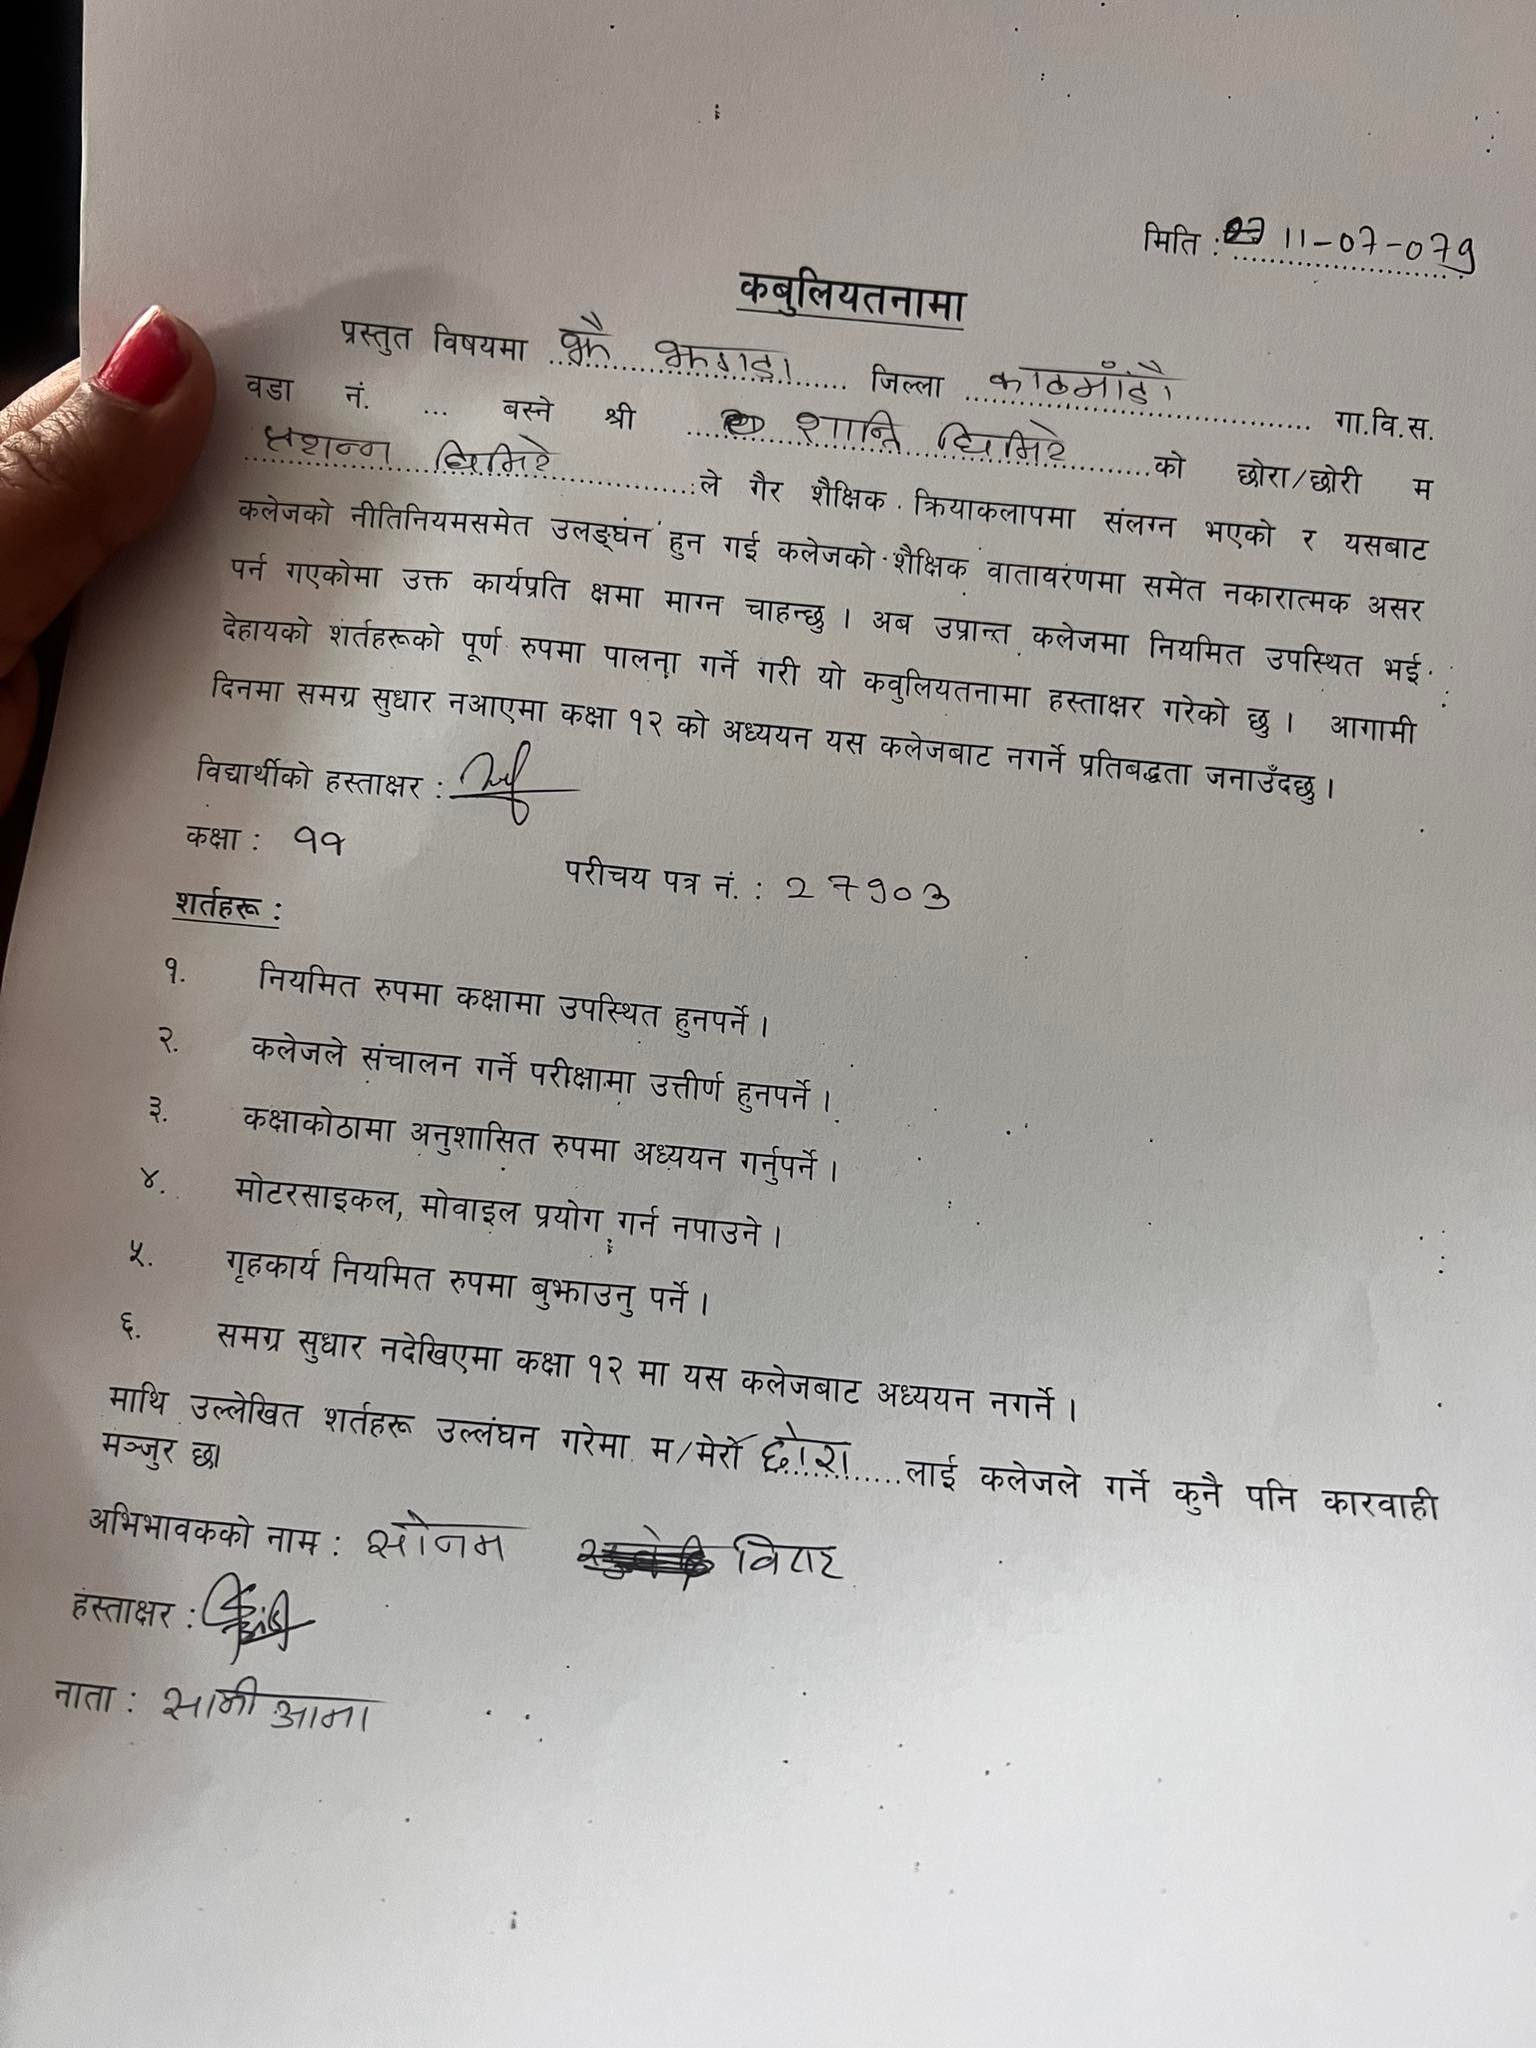 मिति : 11-07-079
कबुलियतनामा
प्रस्तुत विषयमा झै झगडा जिल्ला काठमाँडौ गा.वि.स.
वडा नं. ... बस्ने श्री शान्ति घिमिरे को छोरा/छोरी म
घिमिरे ले गैर शैक्षिक क्रियाकलापमा संलग्न भएको र यसबाट
कलेजको नीतिनियमसमेत उलङ्घंन हुन गई कलेजको शैक्षिक वातायरणमा समेत नकारात्मक असर
पर्न गएकोमा उक्त कार्यप्रति क्षमा माग्न चाहन्छु । अब उप्रान्त कलेजमा नियमित उपस्थित भई
देहायको शर्तहरूको पूर्ण रुपमा पालना गर्ने गरी यो कवुलियतनामा हस्ताक्षर गरेको छु । आगामी
दिनमा समग्र सुधार नआएमा कक्षा १२ को अध्ययन यस कलेजबाट नगर्ने प्रतिबद्धता जनाउँदछु ।
विद्यार्थीको हस्ताक्षर :
कक्षा : ११
परीचय पत्र नं. : 27903
शर्तहरू :
१. नियमित रुपमा कक्षामा उपस्थित हुनपर्ने ।
२. कलेजले संचालन गर्ने परीक्षामा उत्तीर्ण हुनपर्ने ।
३. कक्षाकोठामा अनुशासित रुपमा अध्ययन गर्नुपर्ने ।
४. मोटरसाइकल, मोवाइल प्रयोग गर्न नपाउने ।
५. गृहकार्य नियमित रुपमा बुझाउनु पर्ने ।
६. समग्र सुधार नदेखिएमा कक्षा १२ मा यस कलेजबाट अध्ययन नगर्ने ।
माथि उल्लेखित शर्तहरू उल्लंघन गरेमा म/मेरो छोरा लाई कलेजले गर्ने कुनै पनि कारवाही
मञ्जुर छ।
अभिभावकको नाम : सोनम
हस्ताक्षर :
नाता : सानीआमा